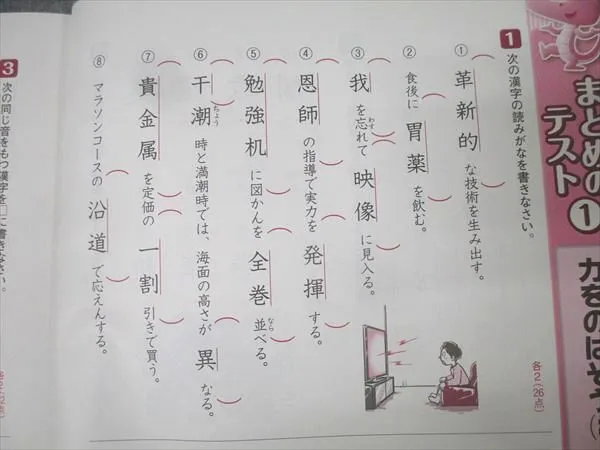 まとめのテスト①
力をのばそう
1 次の漢字の読みがなを書きなさい。
各2(26点)
① 革新的な技術を生み出す。
② 食後に胃薬を飲む。
③ 我を忘れて映像に見入る。
わす
④ 恩師の指導で実力を発揮する。
⑤ 勉強机に図かんを全巻並べる。
なら
⑥ 干潮時と満潮時では、海面の高さが異なる。
ちょう
⑦ 貴金属を定価の一割引きで買う。
⑧ マラソンコースの沿道で応えんする。
3 次の同じ音をもつ漢字を□に書きなさい。